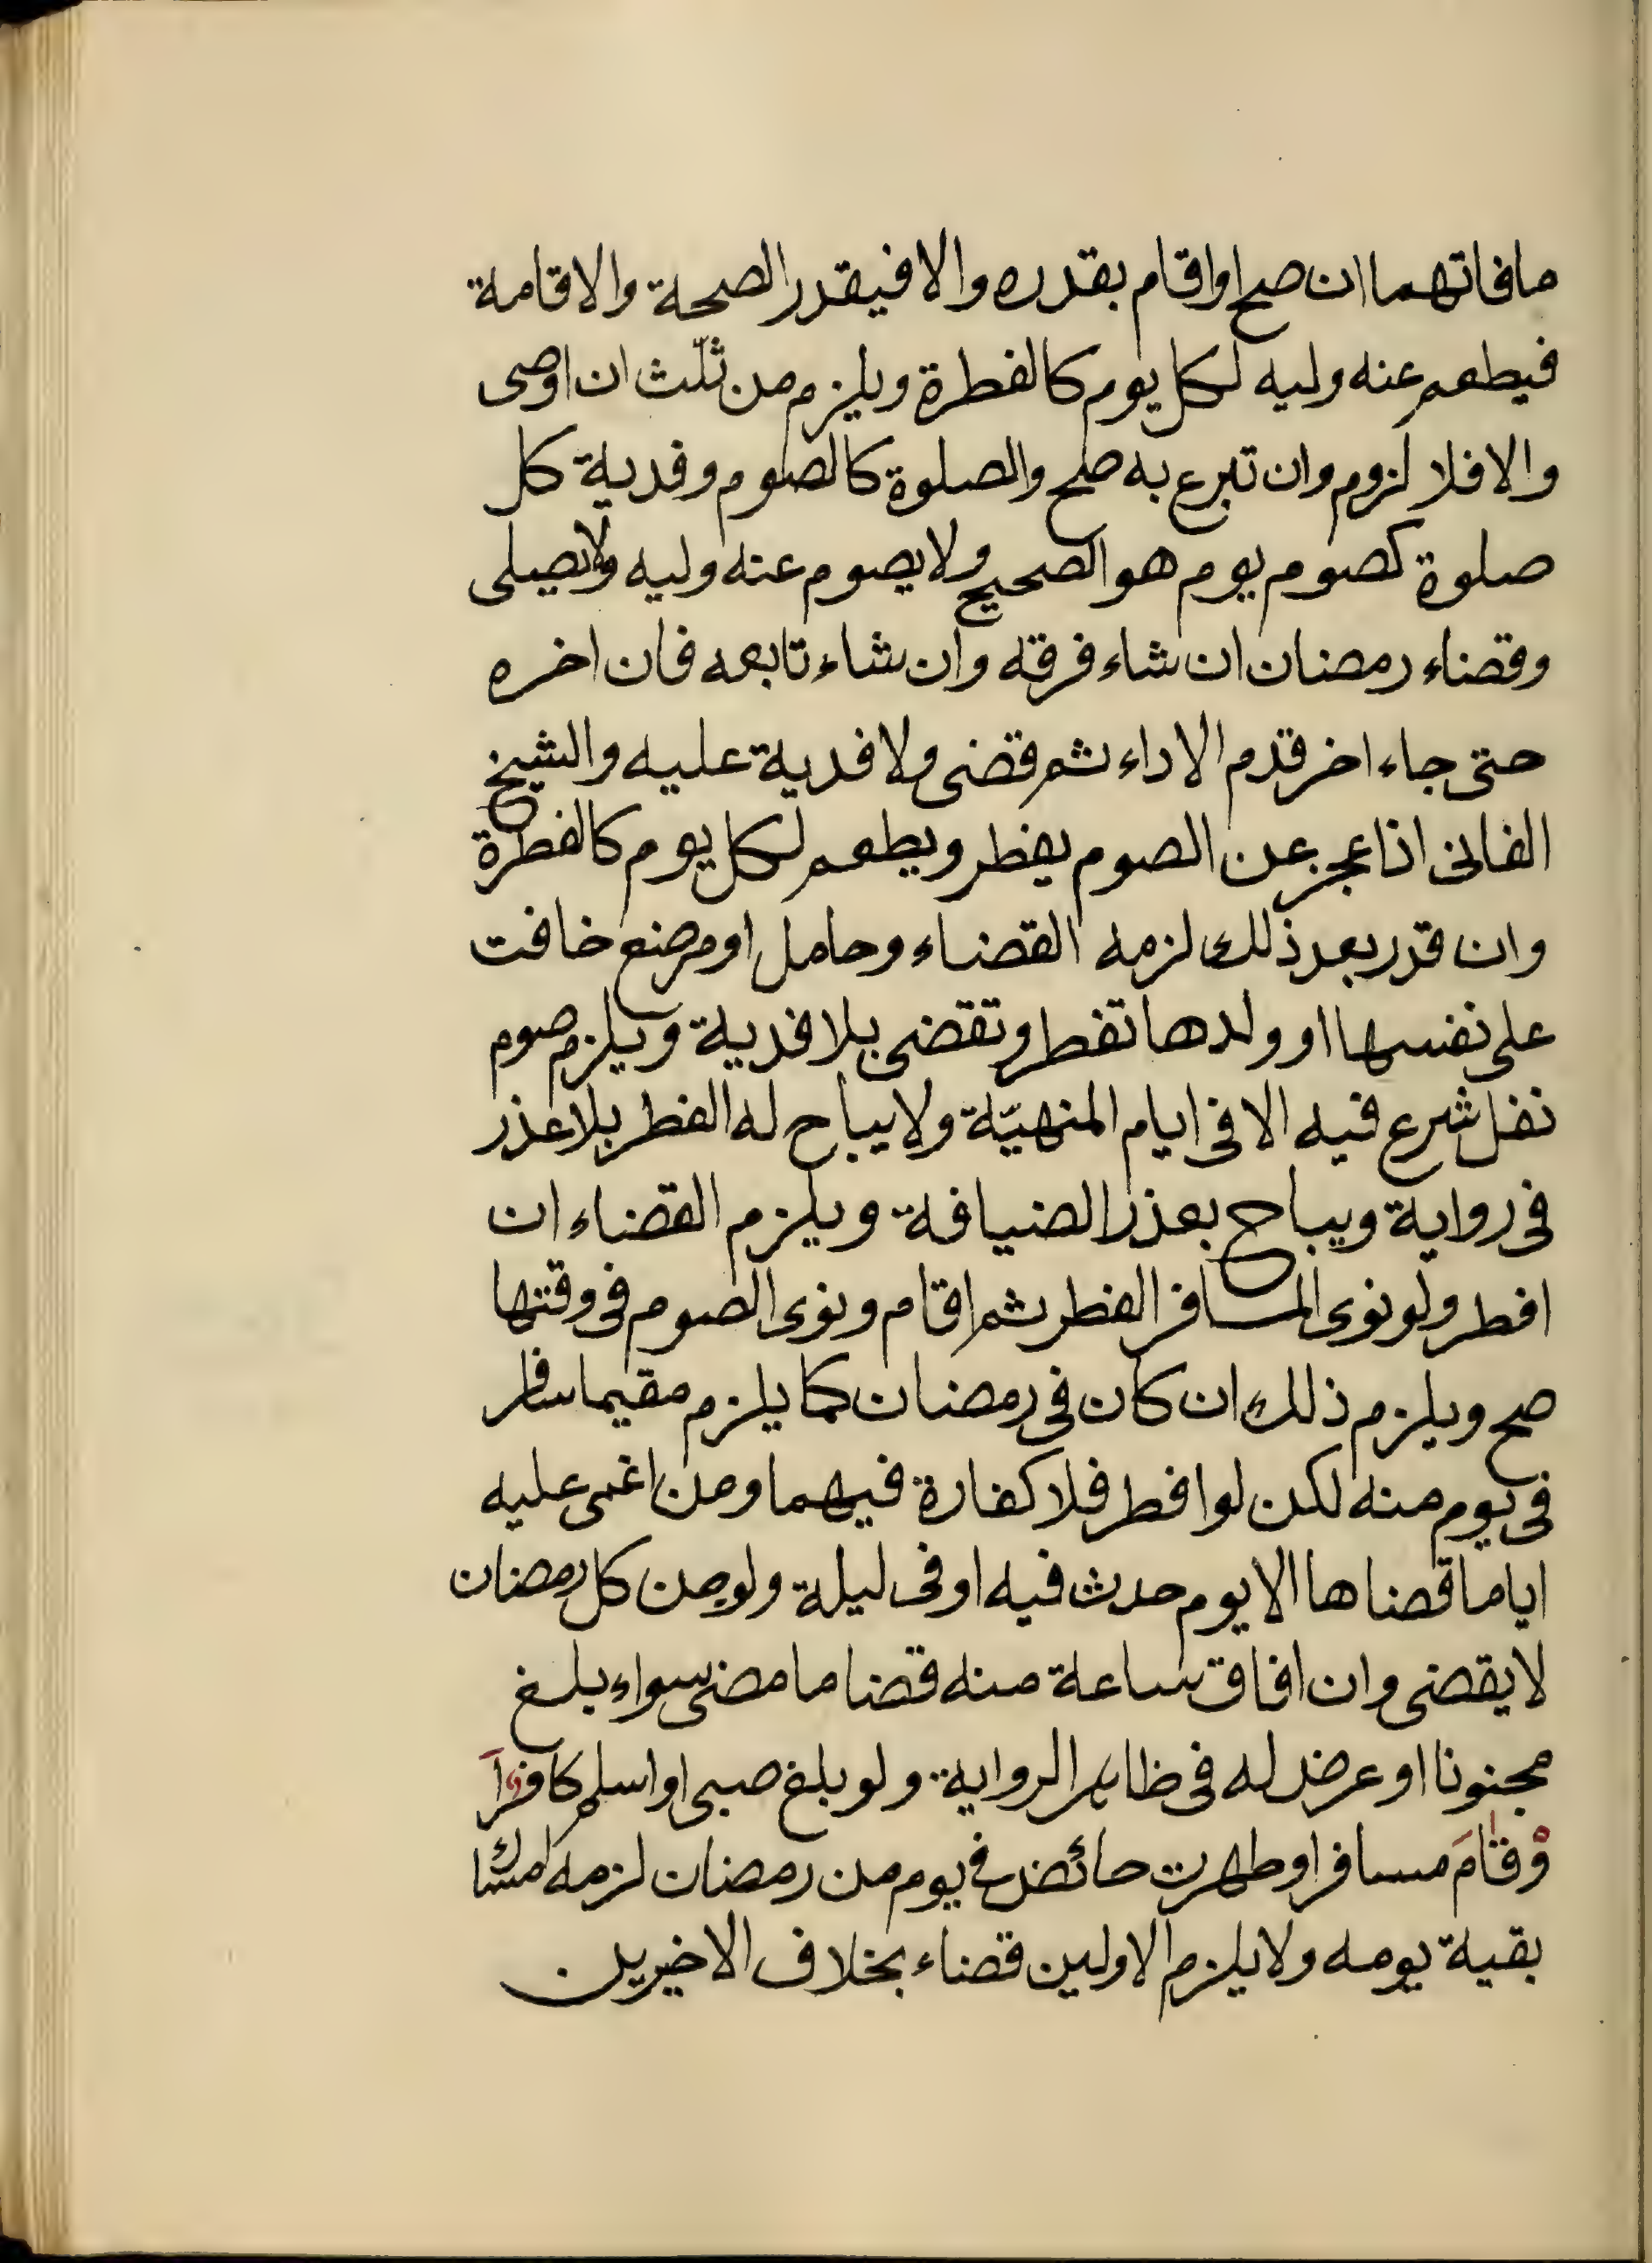 مافاتهما ان صح او اقام بقدره والا فيقدر الصحة والاقامة
فيطعم عنه وليه لكل يوم كالفطرة ويلزم من ثلث ان اوصى
والا فلا لزوم وان تبرع به صلح والصلوة كالصوم وفدية كل
صلوة كصوم يوم هو الصحيح ولا يصوم عنه وليه ولا يصلى
وقضاء رمضان ان شاء فرقه وان شاء تابعه فان اخره
حتى جاء اخر قدم الاداء ثم قضى ولا فدية عليه والشيخ
الفانى اذا عجز عن الصوم يفطر ويطعم لكل يوم كالفطرة
وان قدر بعد ذلك لزمه القضاء وحامل او مرضع خافت
على نفسها او ولدها تفطر وتقضى بلا فدية ويلزم صوم
نفل شرع فيه الا فى ايام المنهيّة ولا يباح له الفطر بلا عذر
فى رواية ويباح بعذر الضيافة ويلزم القضاء ان
افطر ولو نوى المسافر الفطر ثم اقام ونوى الصوم فى وقتها
صح ويلزم ذلك ان كان فى رمضان كما يلزم مقيما سافر
فى يوم منه لكن لو افطر فلا كفارة فيهما ومن اغمى عليه
اياما قضاها الا يوم حدث فيه او فى ليلة ولو جن كل رمضان
لا يقضى وان افاق ساعة منه قضا ما مضى سواء بلغ
مجنونا او عرض له فى ظاهر الرواية ولو بلغ صبى او اسلم كافر
او قام مسافر او طهرت حائض فى يوم من رمضان لزمه امساك
بقية يومه ولا يلزم الاولين قضاء بخلاف الاخيرين